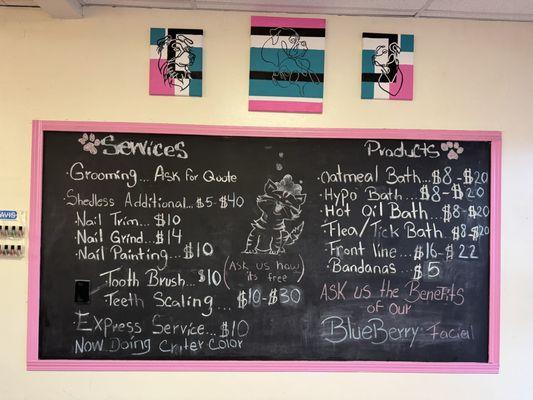 Sewices
·Grooming... Ask for Quote
·Shedless Additional...$5-$40
·Nail Trim...$10
·Nail Grind...$14
·Nail Painting...$10
·Tooth Brush...$10
Teeth Scaling...$10-$30
·Express Service...$10
Now Doing Criter Color
Ask us how
its free
Products
·Oatmeal Bath...$8-$20
·Hypo Bath...$8-$20
·Hot Oil Bath...$8-$20
·Flea/Tick Bath...$8-$20
·Front line...$16-$22
·Bandanas...$5
Ask us the Benefits
of Our
BlueBerry Facial
DAVIS